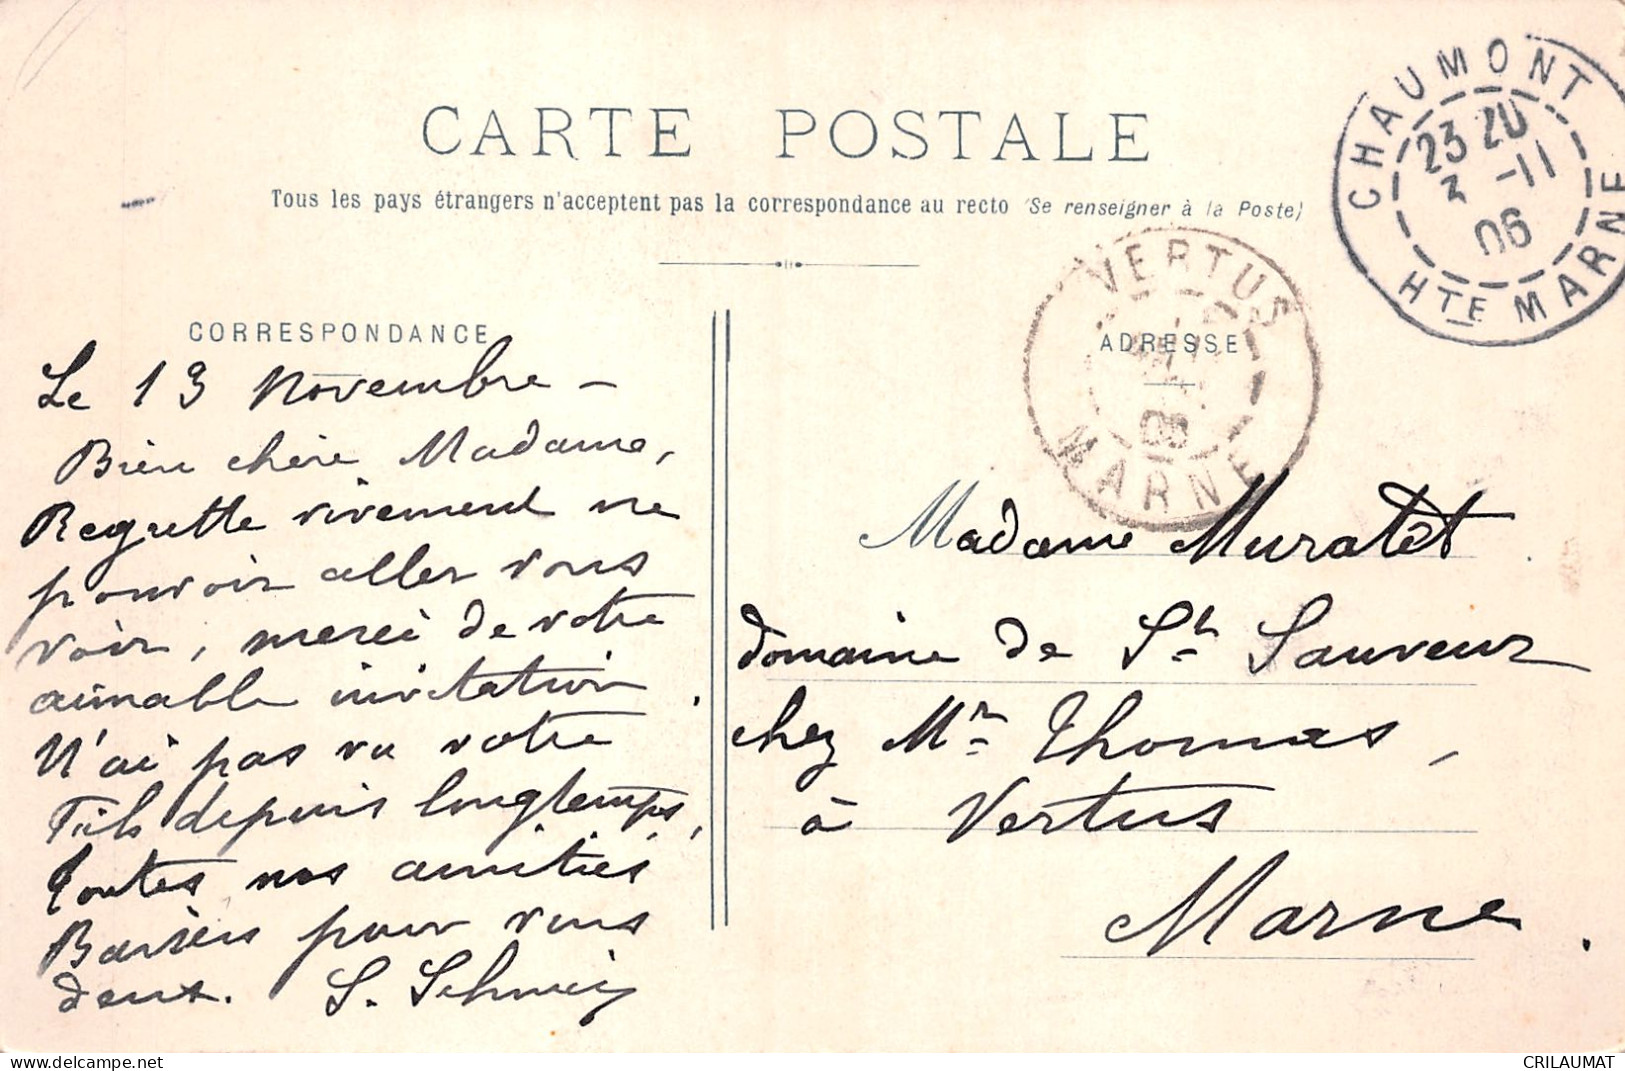 CARTE POSTALE
Tous les pays étrangers n'acceptent pas la correspondance au recto (Se renseigner à la Poste)
CHAUMONT
23 20
3 -11
06
HTE MARNE
VERTUS
06
MARNE
CORRESPONDANCE
Le 13 Novembre -
Bien chère Madame,
Regrette vivement ne
pouvoir aller vous
voir, merci de votre
aimable invitation.
N'ai pas vu votre
Fils depuis longtemps,
Toutes nos amitiés
Baisers pour vous
deux. S.
ADRESSE
Madame Muratet
domaine de St Sauveur
chez Mr Thomas,
à Vertus
Marne.
www.delcampe.net
CRILAUMAT